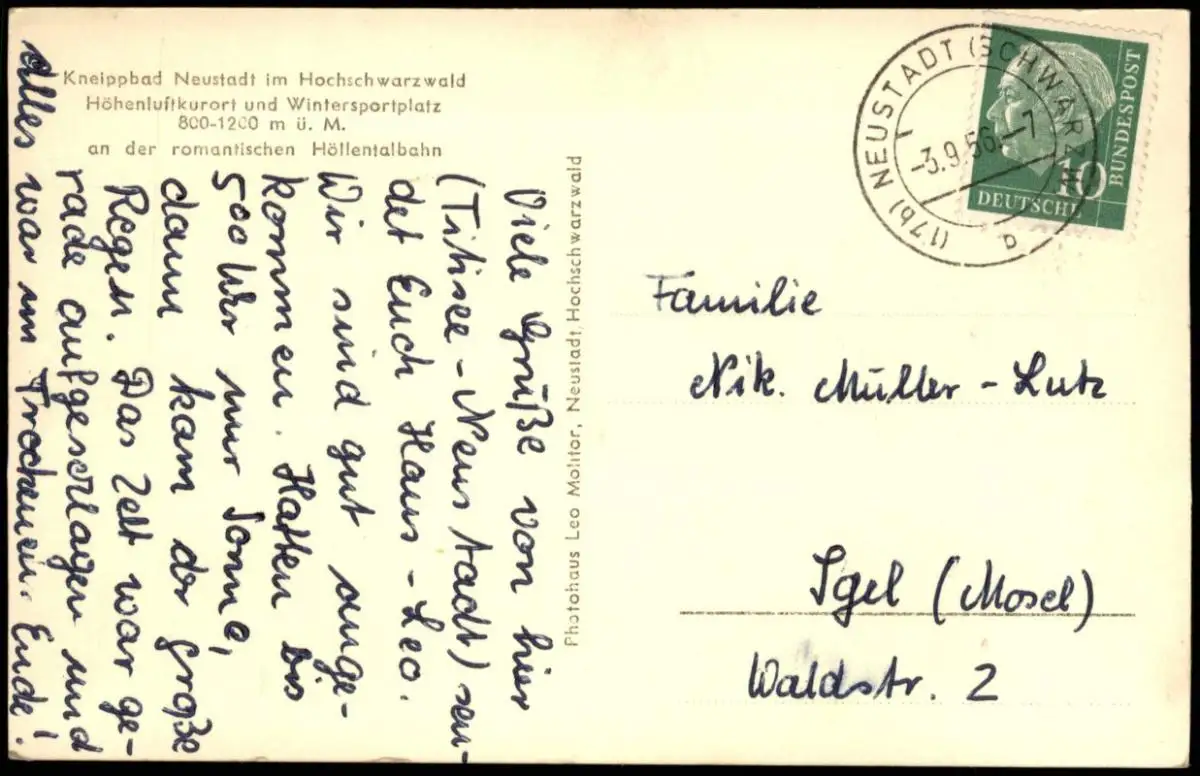 Kneippbad Neustadt im Hochschwarzwald
Höhenluftkurort und Wintersportplatz
800-1200 m ü. M.
an der romantischen Höllentalbahn
Viele Grüße von hier
(Titisee-Neustadt) sen-
det Euch Hans-Leo.
Wir sind gut ange-
kommen. Hatten bis
500 Uhr nur Sonne,
dann kam der große
Regen. Das Zelt war ge-
rade aufgeschlagen und
alles war im Trockenen. Ende!
Photohaus Leo Molitor, Neustadt, Hochschwarzwald
(17b) NEUSTADT (SCHWARZW)
-3.9.56.-7
a
DEUTSCHE
BUNDESPOST
10
Familie
Nik. Müller-Lutz
Igel (Mosel)
Waldstr. 2